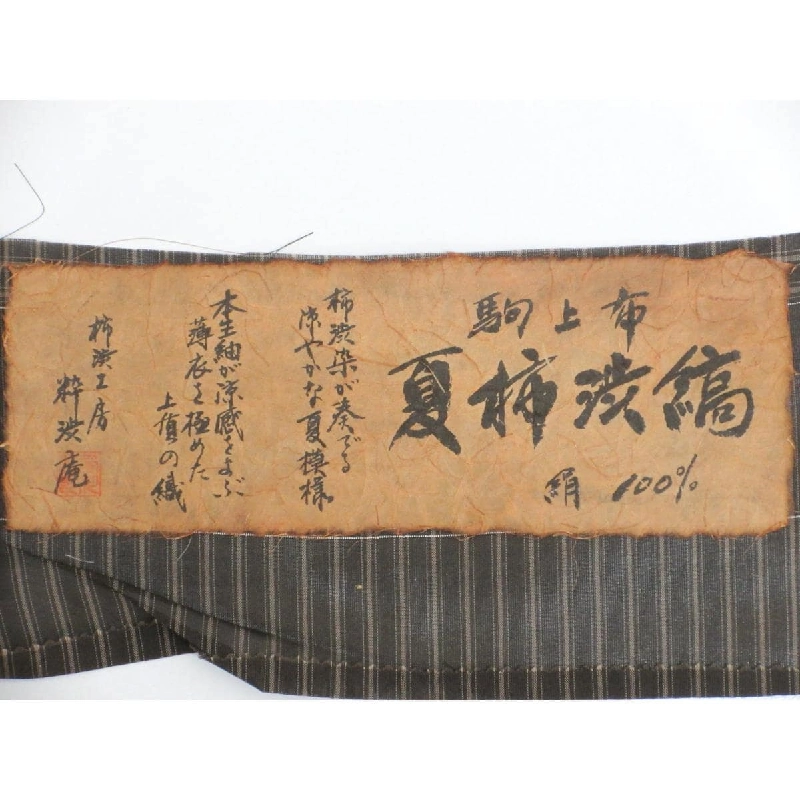 駒上布
夏柿渋縞
絹 100%
柿渋染が奏でる
涼やかな夏模様。
本生紬が涼感をよぶ
薄衣を極めた
上質の織
柿渋工房
粋渋庵